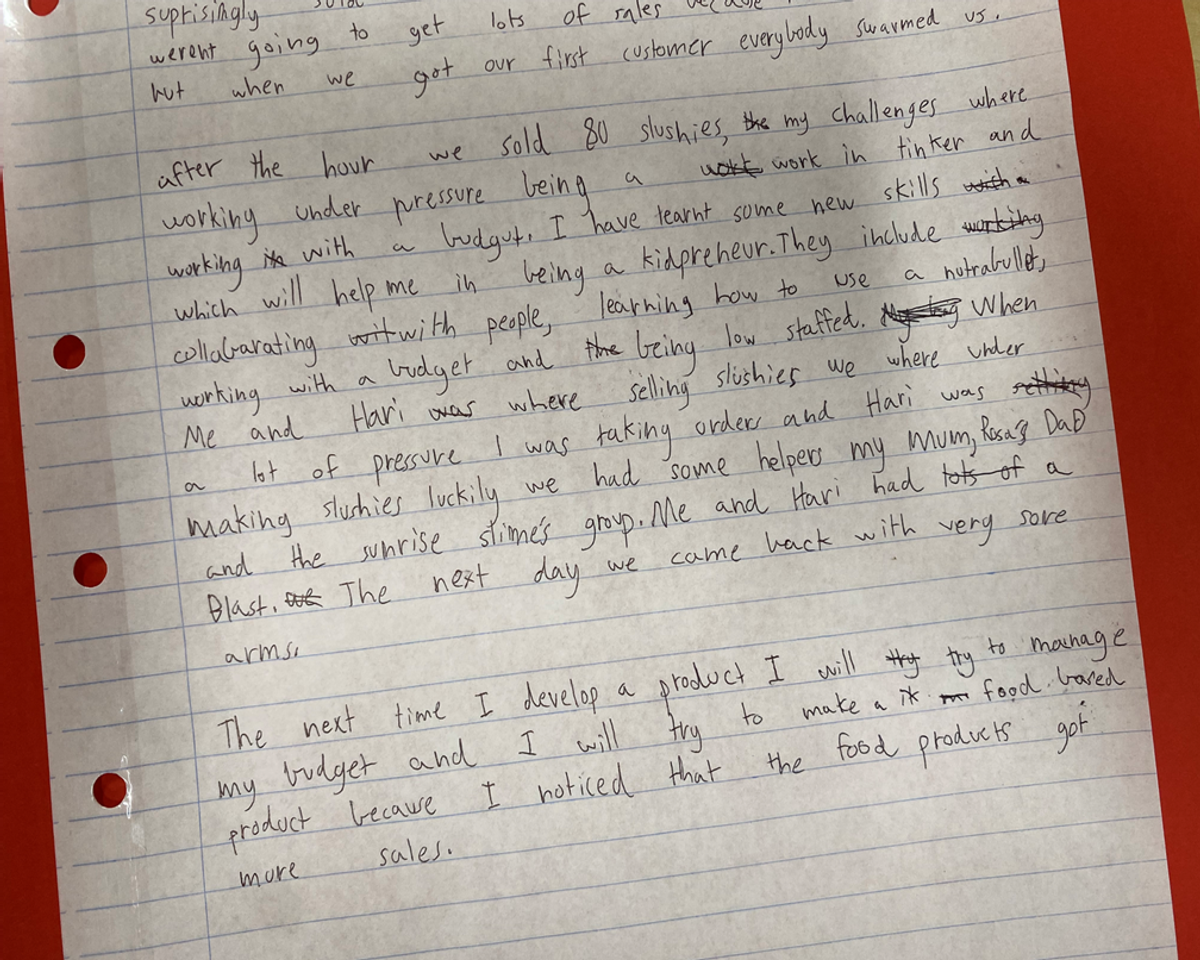 suprisingly
werent going to get lots of sales
but when we got our first customer everybody swarmed us.
after the hour we sold 80 slushies, the my challenges where
working under pressure being a work in tinker and
working in with a budgut. I have learnt some new skills with a
which will help me in being a kidpreheur. They include working
collabarating wit with people, learning how to use a nutrabullet,
working with a budget and the being low staffed. When
Me and Hari was where selling slushies we where under
a lot of pressure I was taking orders and Hari was
making slushies luckily we had some helpers my Mum, Rosa's DaD
and the sunrise slime's group. Me and Hari had lots of a
Blast. we The next day we came back with very sore
arms.
The next time I develop a product I will try to manage
my budget and I will try to make a it food based
product because I noticed that the food products got
more sales.